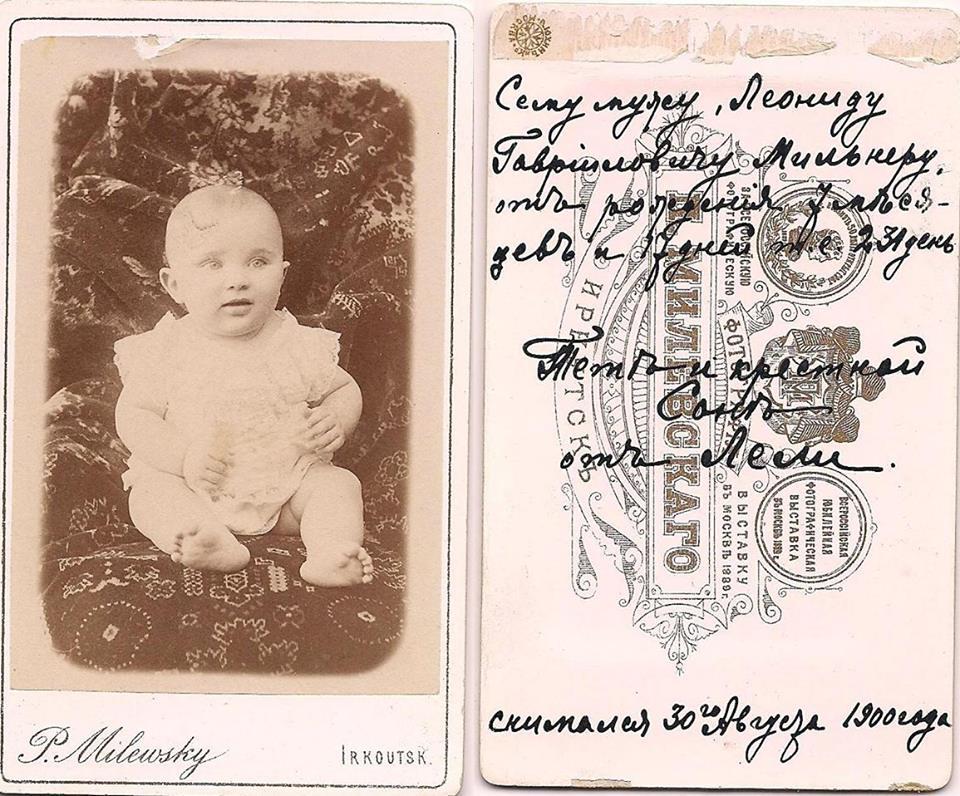 P. Milewsky
IRKOUTSK.
Сему мужу, Леониду
Гаврiиловичу Мильнеру,
отъ рожденiя 7 мѣся-
цевъ и 17 дней т.е 231 день
Тетѣ и крестной
Сонѣ
отъ Лели.
снимался 30го Августа 1900 года
МИЛЕВСКАГО
ИРКУТСКЪ
ФОТОГРАФИЧЕСКУЮ
ВЫСТАВКУ
ВЪ МОСКВѢ 1889 г.
ВСЕРОССIЙСКАЯ
ЮБИЛЕЙНАЯ
ФОТОГРАФИЧЕСКАЯ
ВЫСТАВКА
ВЪ МОСКВѢ 1889 г.